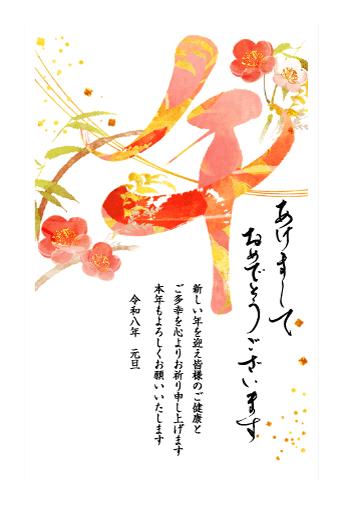 午
あけまして
おめでとうございます
新しい年を迎え皆様のご健康と
ご多幸を心よりお祈り申し上げます
本年もよろしくお願いいたします
令和八年　元旦